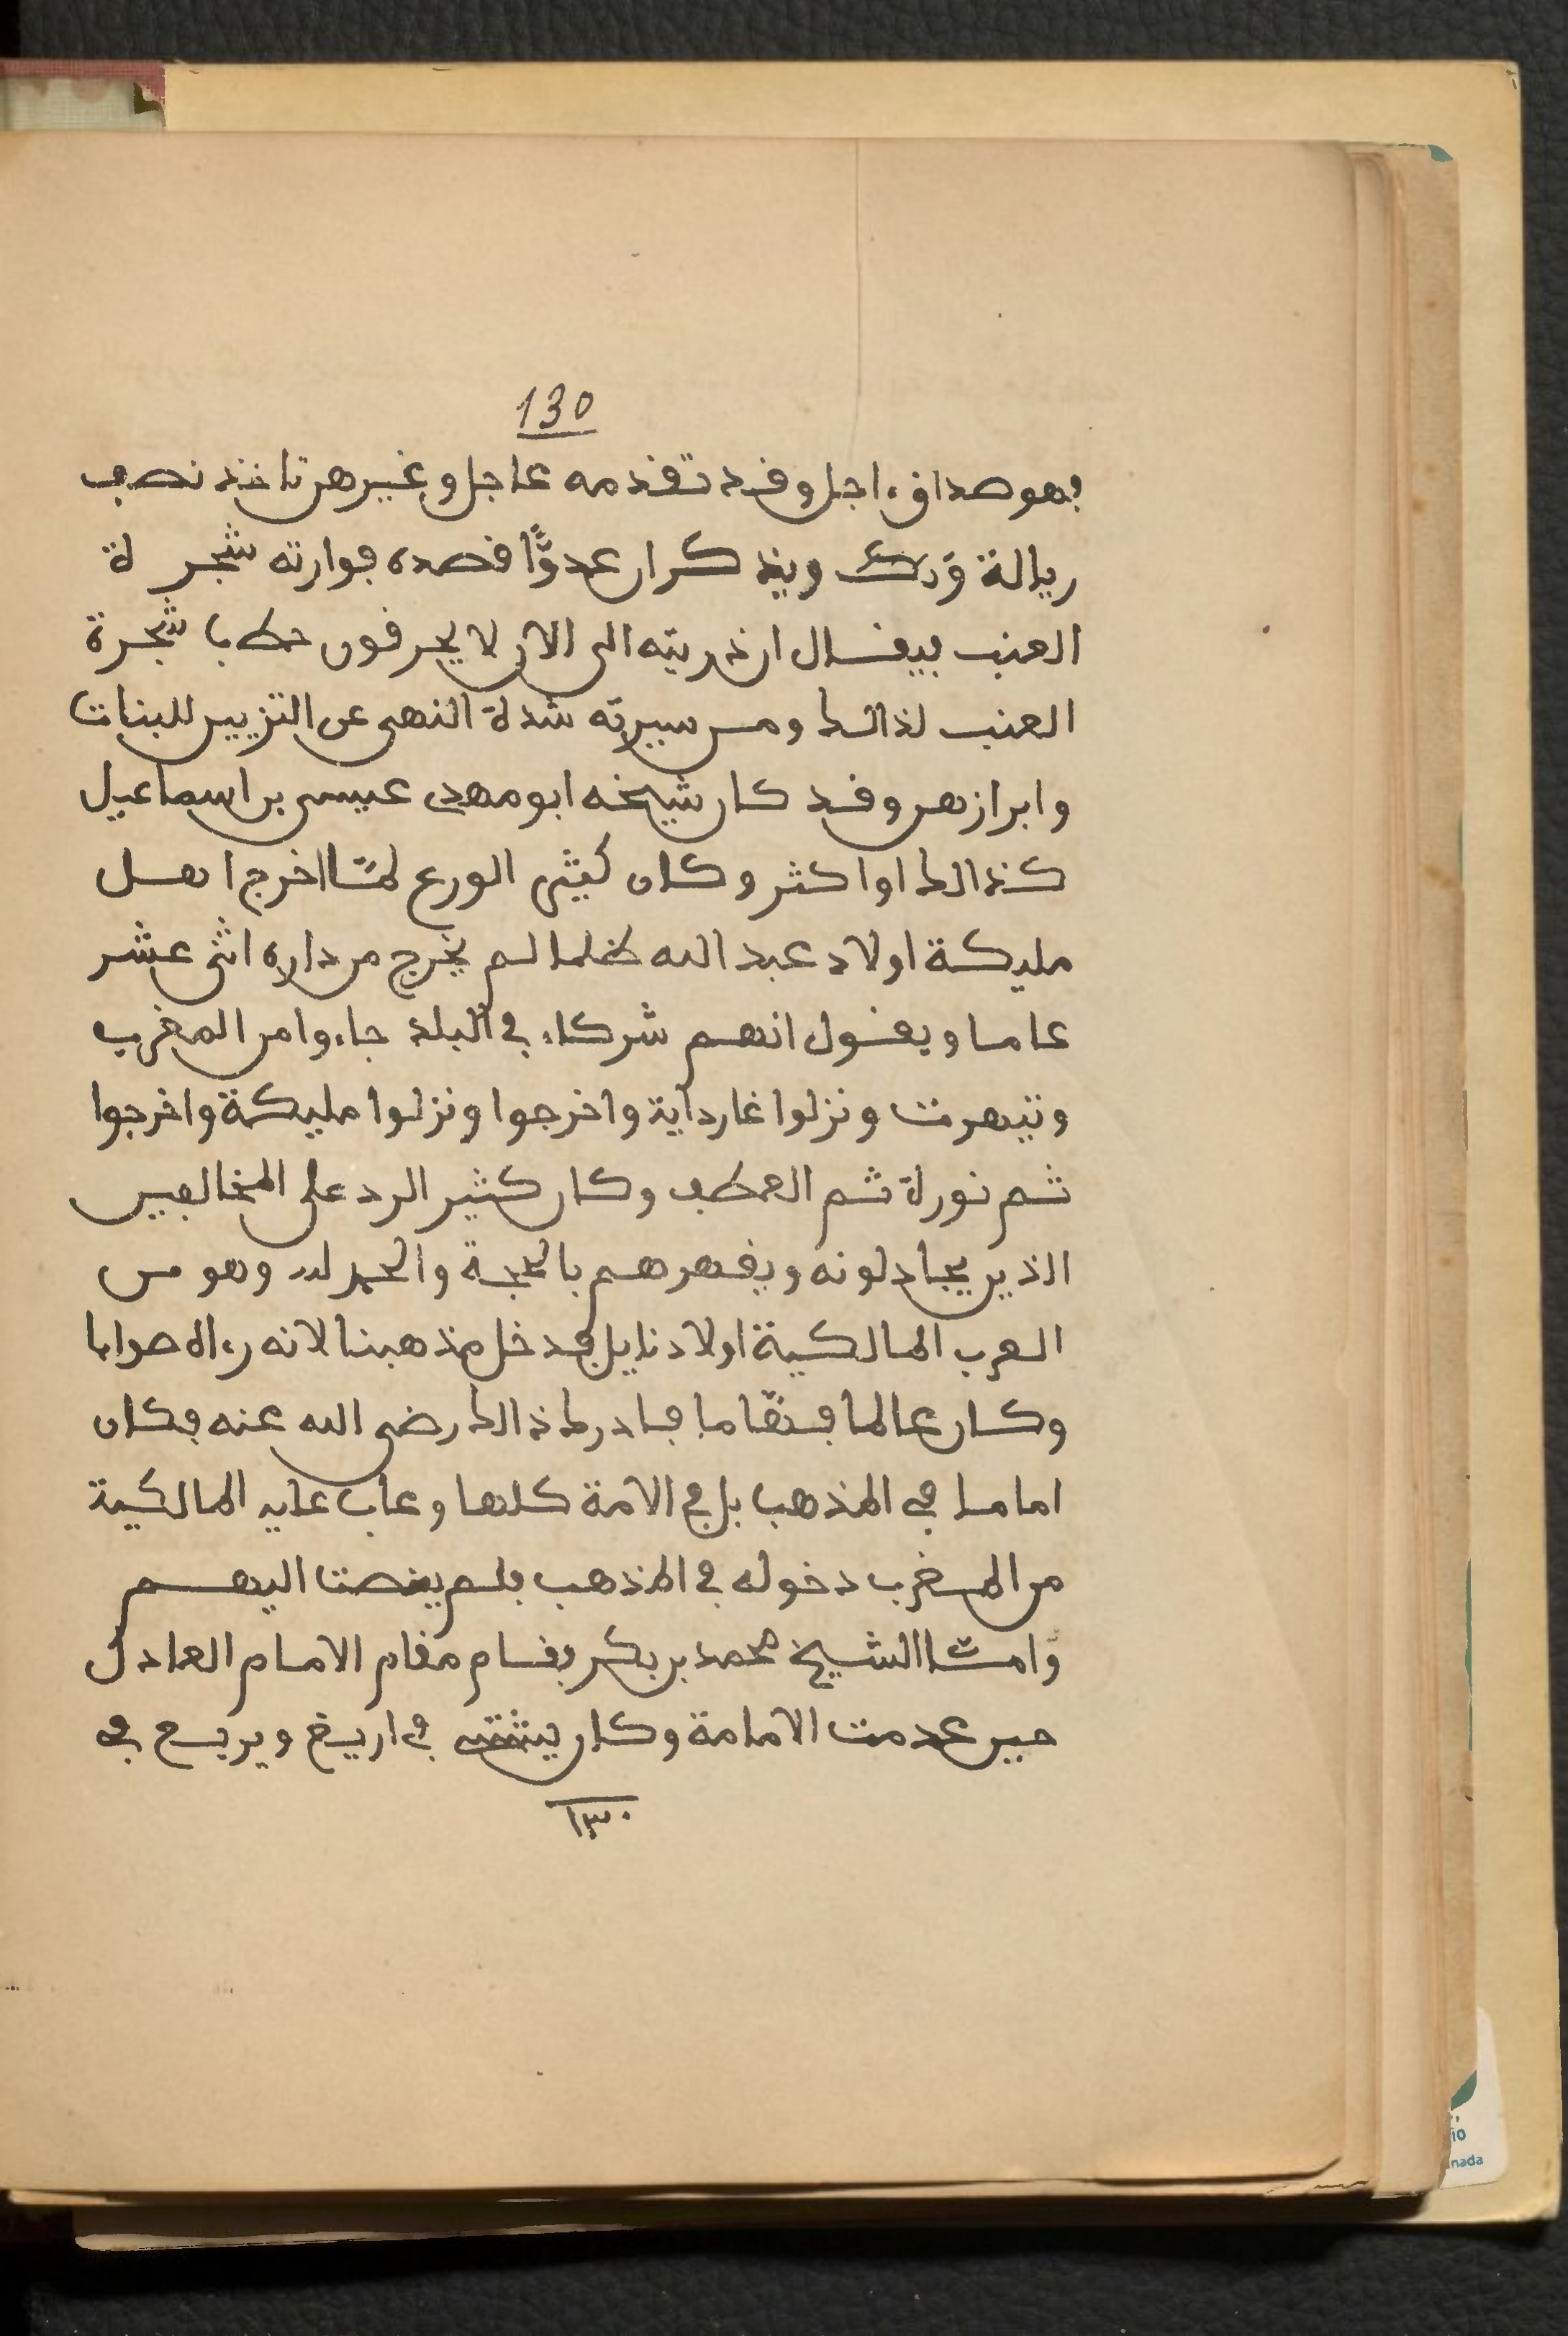 130
فهو صداق ءاجل وقد تقدمه عاجل وغيرهن تاخذ نصف
ريالة ورك ويذكر ان عدوًّا قصده فوارته شجرة
العنب فيقال ان ذريته الى الان لا يحرقون حطب شجرة
العنب لذالك ومن سيرته شدة النهي عن التزيين للبنات
وابرازهن وقد كان شيخه ابو مهدي عيسى بن اسماعيل
كذالك او اكثر وكان كثير الورع لمّا اخرج اهل
مليكة اولاد عبد الله ظلما لم يخرج من داره اثنى عشر
عاما ويقول انهم شركاء في البلد جاءوا من المغرب
وتيهرت ونزلوا غارداية واخرجوا ونزلوا مليكة واخرجوا
ثم نورة ثم العطف وكان كثير الرد على المخالفين
الذين يجادلونه ويقهرهم بالحجة والحمد لله وهو من
العرب المالكية اولاد نايل فدخل مذهبنا لانه رءاه صوابا
وكان عالما فهّاما فادرك ذالك رضي الله عنه فكان
اماما في المذهب بل في الامة كلها وعاب عليه المالكية
من المغرب دخوله في المذهب فلم ينصت اليهم
وامّا الشيخ محمد بن بكر فقام مقام الامام العادل
حين عدمت الامامة وكان يشتي في اريغ ويربع في
١٣٠